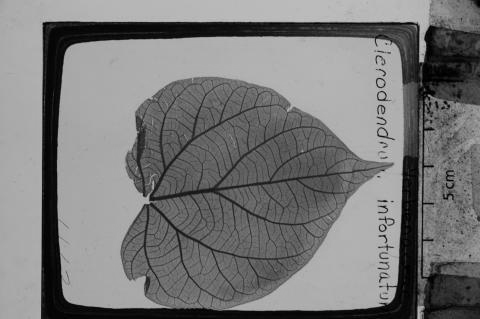 Clerodendrum infortunatum
5cm